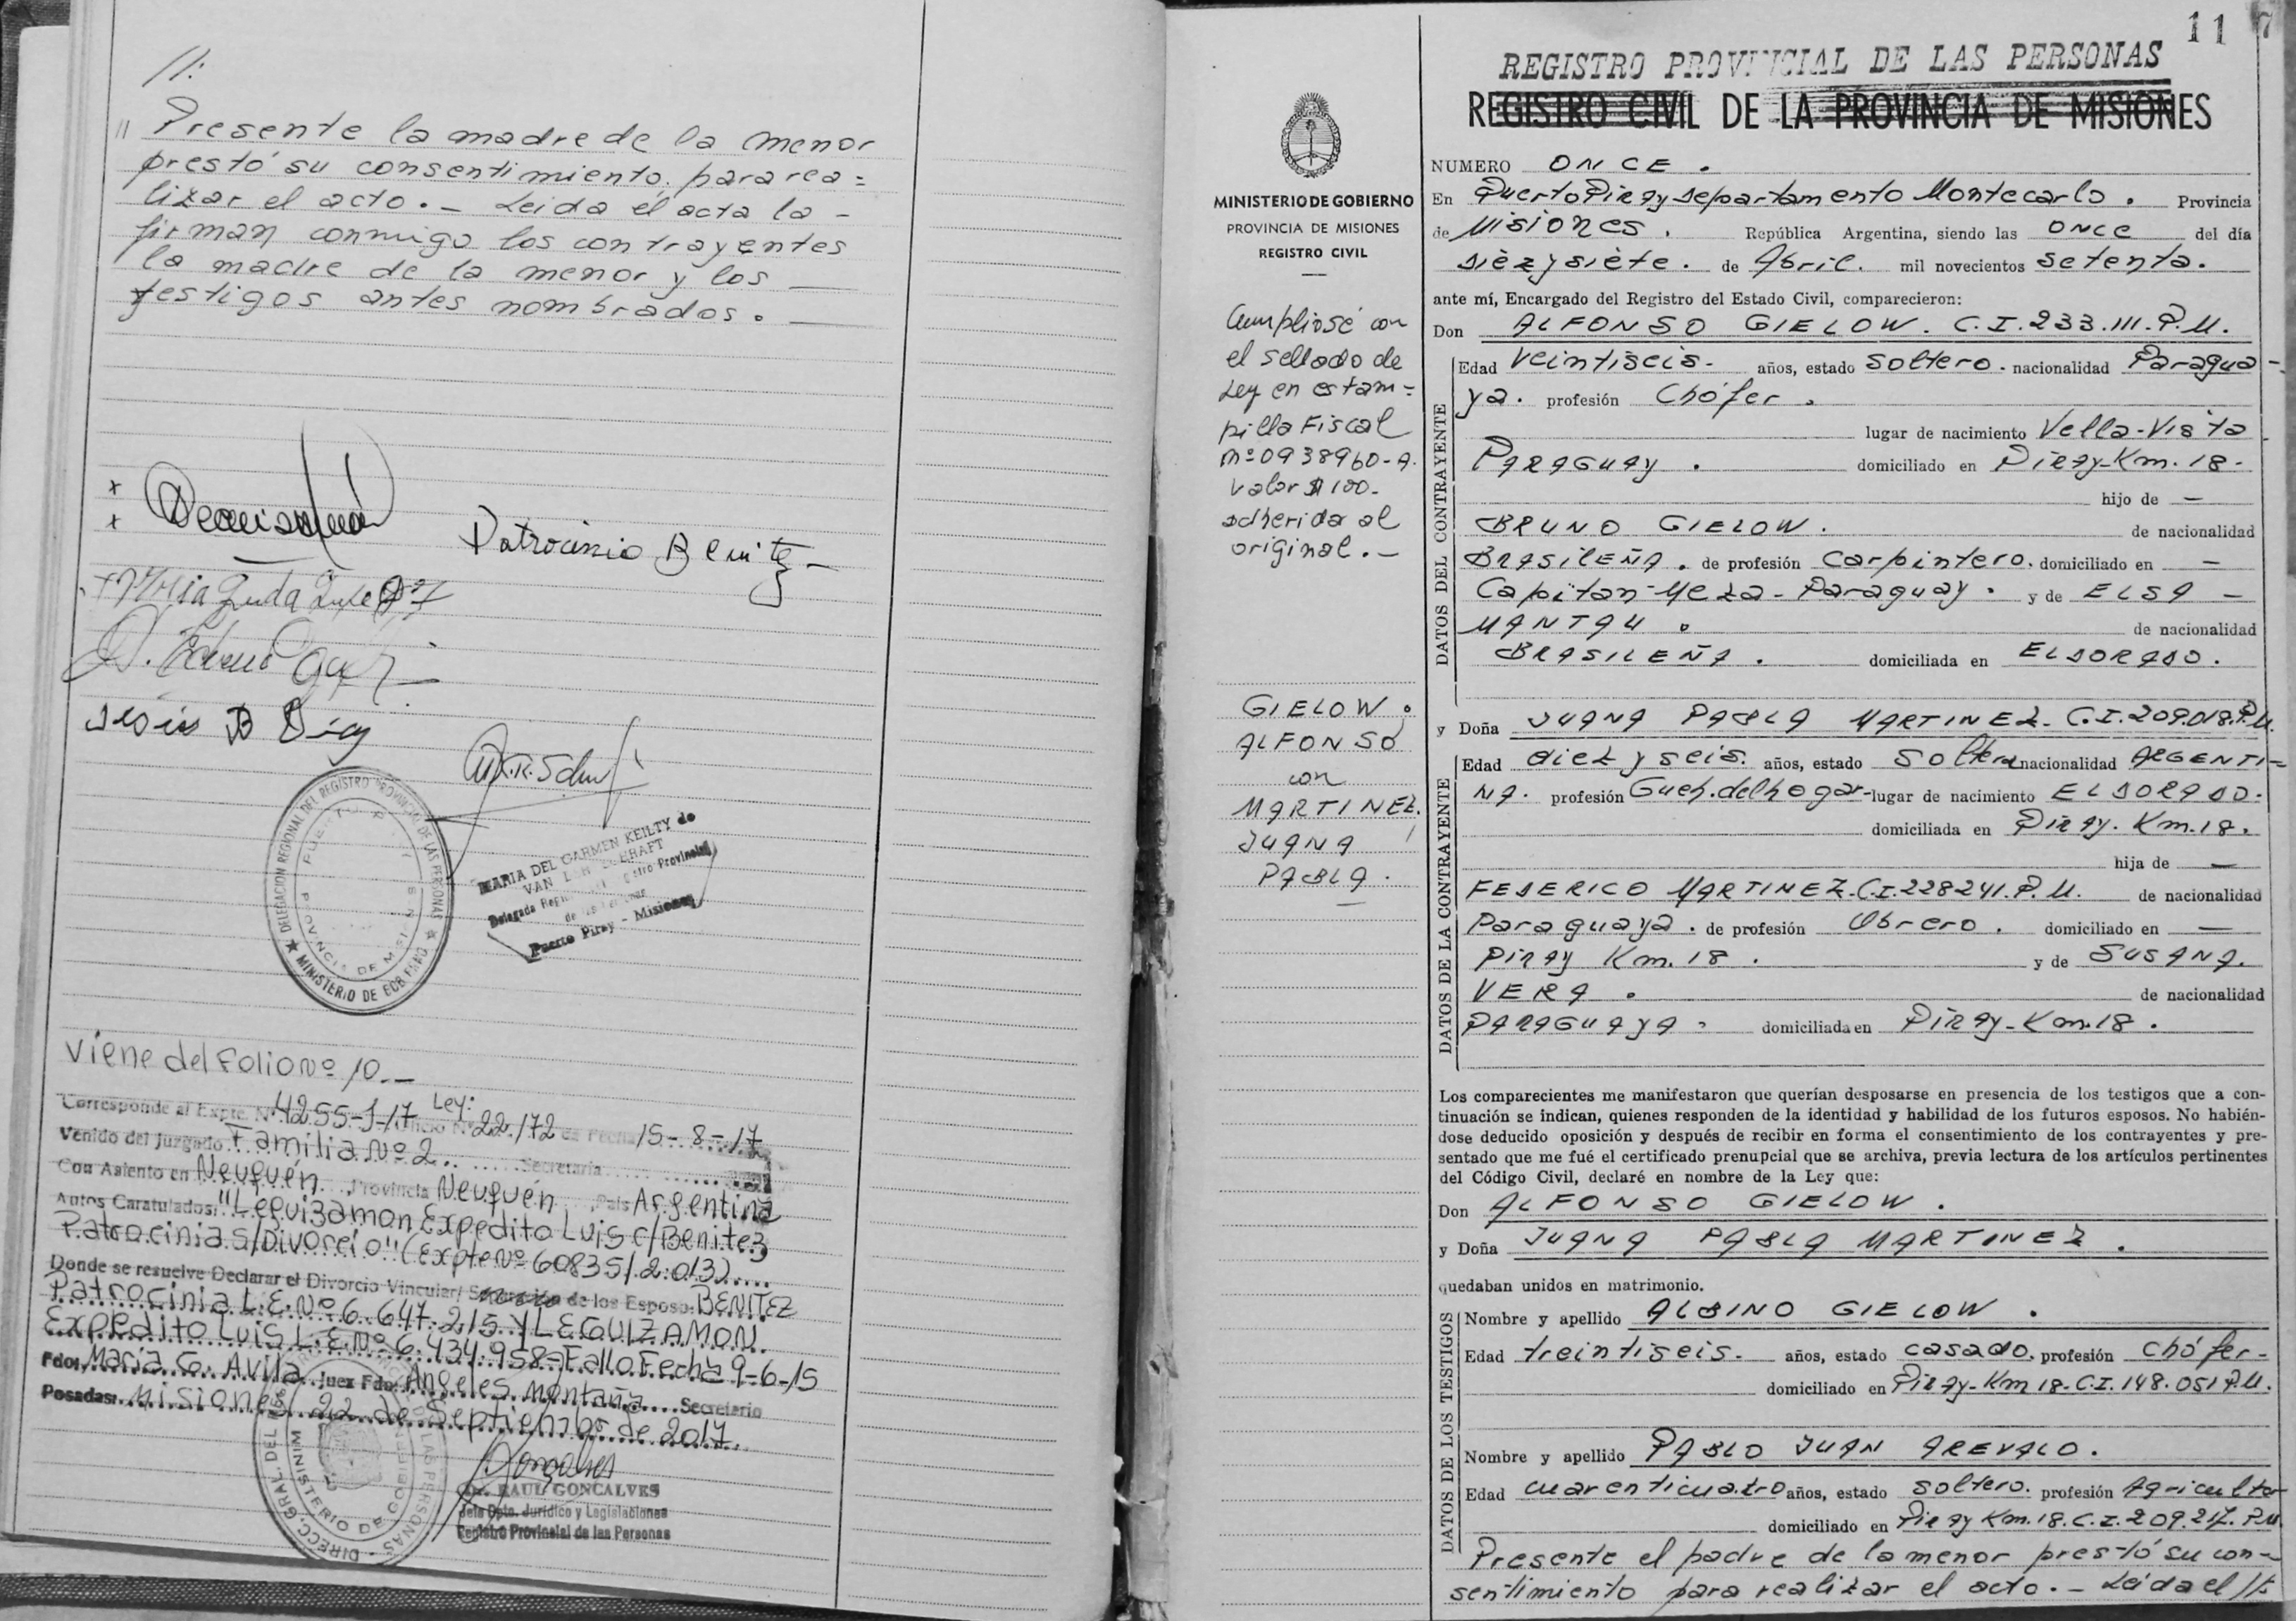 //:
// Presente la madre de la menor
prestó su consentimiento para rea=
lizar el acto.- Leida el acta la -
firman conmigo los contrayentes
la madre de la menor y los
testigos antes nombrados.
Patrocinia Benitez
viene del Folio Nº 10.-
Corresponde al Expte. Nº 4255-J-17 Ley: 22.172 de Fecha 15-8-17
Venido del Juzgado Familia Nº 2. Secretaría
Con Asiento en Neuquén Provincia Neuquén País Argentina
Autos Caratulados: "Leguizamon Expedito Luis c/Benitez
Patrocinia S/Divorcio" (Expte Nº 60835/2.013)
Donde se resuelve Declarar el Divorcio Vincular/ de los Esposo: BENITEZ
Patrocinia L.E. Nº 6.647.215 y LEGUIZAMON
Expedito Luis L.E. Nº 6.434.958- Fallo Fecha 9-6-15
Fdo: Maria G. Avila Juez Fdo: Angeles Montaña Secretario
Posadas: Misiones, 22 de Septiembre de 2017.
DELEGACION REGIONAL DEL REGISTRO PROVINCIAL DE LAS PERSONAS
MINISTERIO DE GOBIERNO
PROVINCIA DE MISIONES
MARIA DEL CARMEN KEILTY de
VAN
Puerto Piray - Misiones
RAUL GONCALVES
Jefe Dpto. Jurídico y Legislaciones
Registro Provincial de las Personas
11 7
REGISTRO PROVINCIAL DE LAS PERSONAS
REGISTRO CIVIL DE LA PROVINCIA DE MISIONES
MINISTERIO DE GOBIERNO
PROVINCIA DE MISIONES
REGISTRO CIVIL
Cumpliose con
el sellado de
Ley en estam=
pilla Fiscal
Nº 0938960-A.
Valor $ 100-
adherida al
original.-
GIELOW
ALFONSO
con
MARTINEZ
JUANA
PABLA.
NUMERO ONCE.
En Puerto Piray departamento Montecarlo. Provincia
de Misiones. República Argentina, siendo las once del día
diezysiete. de Abril. mil novecientos setenta.
ante mí, Encargado del Registro del Estado Civil, comparecieron:
Don ALFONSO GIELOW. C.I. 233.111. P.M.
DATOS DEL CONTRAYENTE
Edad veintiseis- años, estado soltero. nacionalidad Paragua-
ya. profesión Chófer.
lugar de nacimiento Vella-Vista
PARAGUAY. domiciliado en Piray-Km. 18-
hijo de —
BRUNO GIELOW. de nacionalidad
BRASILEÑA. de profesión carpintero. domiciliado en —
Capitan-Meza-Paraguay. y de ELSA -
MANTAU. de nacionalidad
BRASILEÑA. domiciliada en ELDORADO.
y Doña JUANA PABLA MARTINEZ- C.I. 209.018. P.M.
DATOS DE LA CONTRAYENTE
Edad diez y seis. años, estado Soltera nacionalidad ARGENTI=
NA. profesión Queh. del hogar- lugar de nacimiento ELDORADO.
domiciliada en Piray. Km. 18.
hija de —
FEDERICO MARTINEZ. C.I. 228241. P.M. de nacionalidad
Paraguaya. de profesión Obrero. domiciliado en —
Piray Km. 18. y de SUSANA.
VERA. de nacionalidad
PARAGUAYA. domiciliada en Piray-Km.18.
Los comparecientes me manifestaron que querían desposarse en presencia de los testigos que a con-
tinuación se indican, quienes responden de la identidad y habilidad de los futuros esposos. No habién-
dose deducido oposición y después de recibir en forma el consentimiento de los contrayentes y pre-
sentado que me fué el certificado prenupcial que se archiva, previa lectura de los artículos pertinentes
del Código Civil, declaré en nombre de la Ley que:
Don ALFONSO GIELOW.
y Doña JUANA PABLA MARTINEZ.
quedaban unidos en matrimonio.
DATOS DE LOS TESTIGOS
Nombre y apellido ALBINO GIELOW.
Edad treintiseis- años, estado casado. profesión chófer-
domiciliado en Piray-Km 18-C.I. 148.051 P.M.
Nombre y apellido PABLO JUAN AREVALO.
Edad cuarenticuatro años, estado soltero. profesión Agricultor
domiciliado en Piray Km. 18. C.I. 209.217. P.M
Presente el padre de la menor prestó su con-
sentimiento para realizar el acto.- Leida el //: